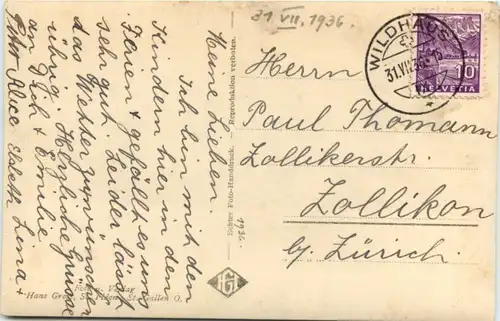 31. VII. 1936.
Meine Lieben.
Ich bin mit den
Kindern hier in den
Ferien & gefällt es uns
sehr gut. Leider lässt
das Wetter zu wünschen
übrig. Herzliche Grüsse
an Dich & Emilie
Alice Elsbeth Lena &
Verlag
Hans Gross, St. Fiden-St. Gallen O.
Echter Foto-Handdruck.
Reproduktion verboten.
1936.
HGF
WILDHAUS
31.VII.36
10
HELVETIA
Herrn
Paul Thomann
Zollikerstr.
Zollikon
b/ Zürich.